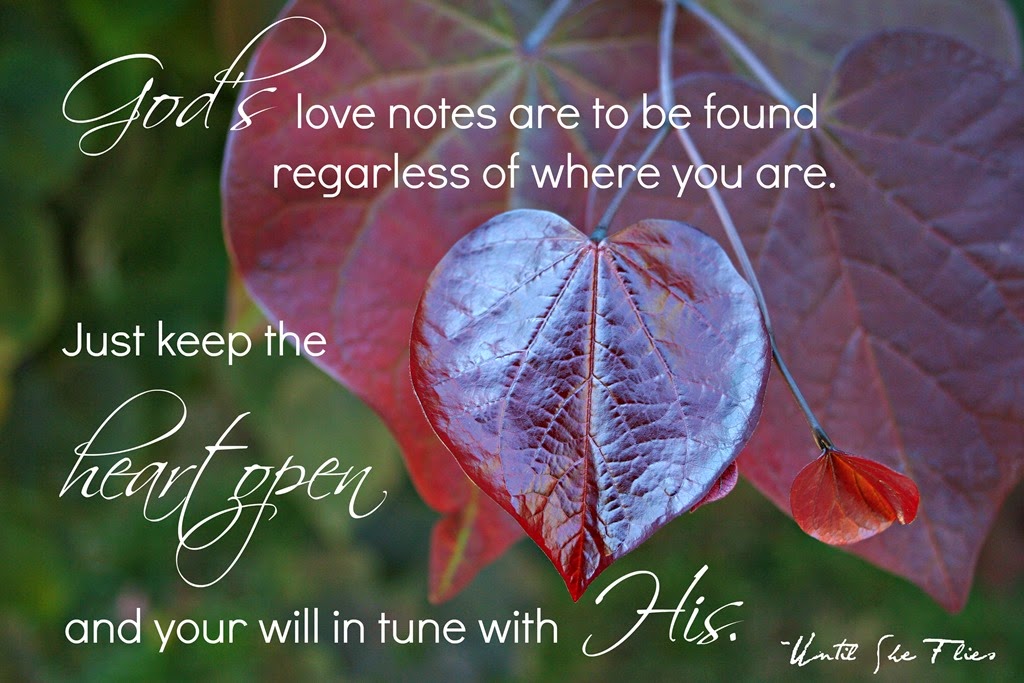 God's love notes are to be found
regarless of where you are.
Just keep the
heart open
and your will in tune with His.
~Until She Flies